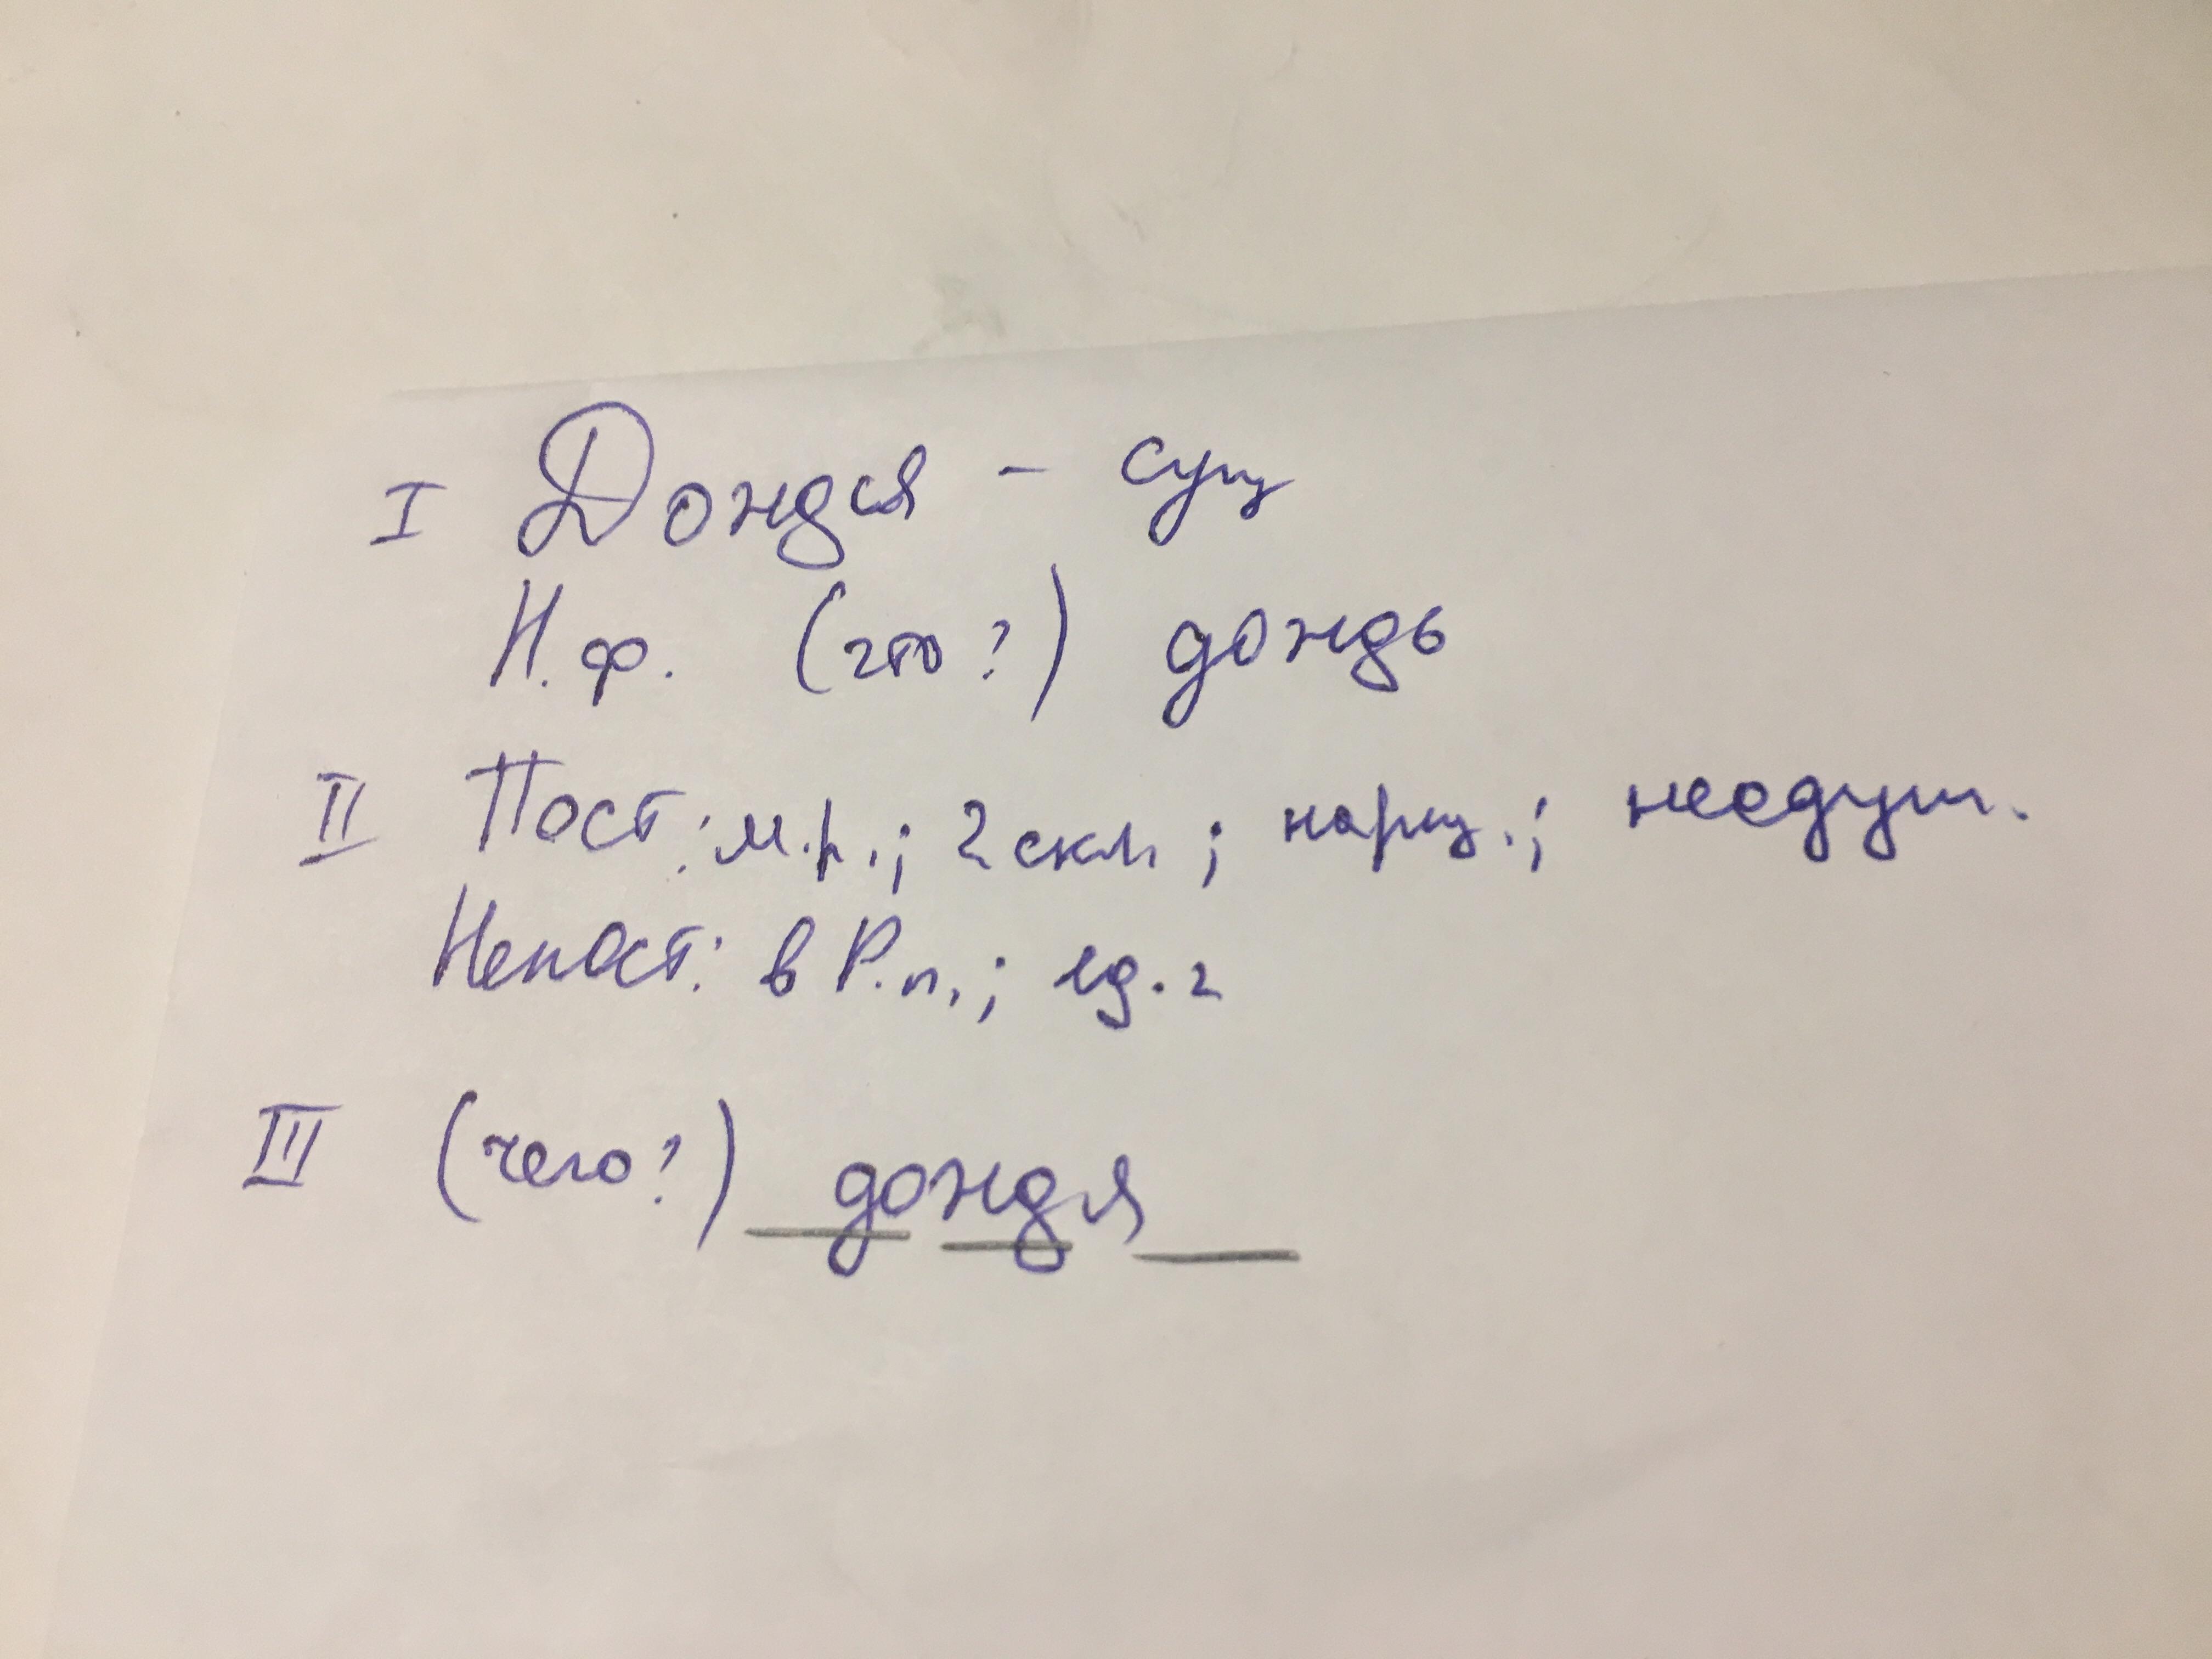 I Дождя - сущ
Н.ф. (что?) дождь
II Пост: м.р.; 2 скл.; нариц.; неодуш.
Непост: в Р.п.; ед.ч
III (чего?) дождя